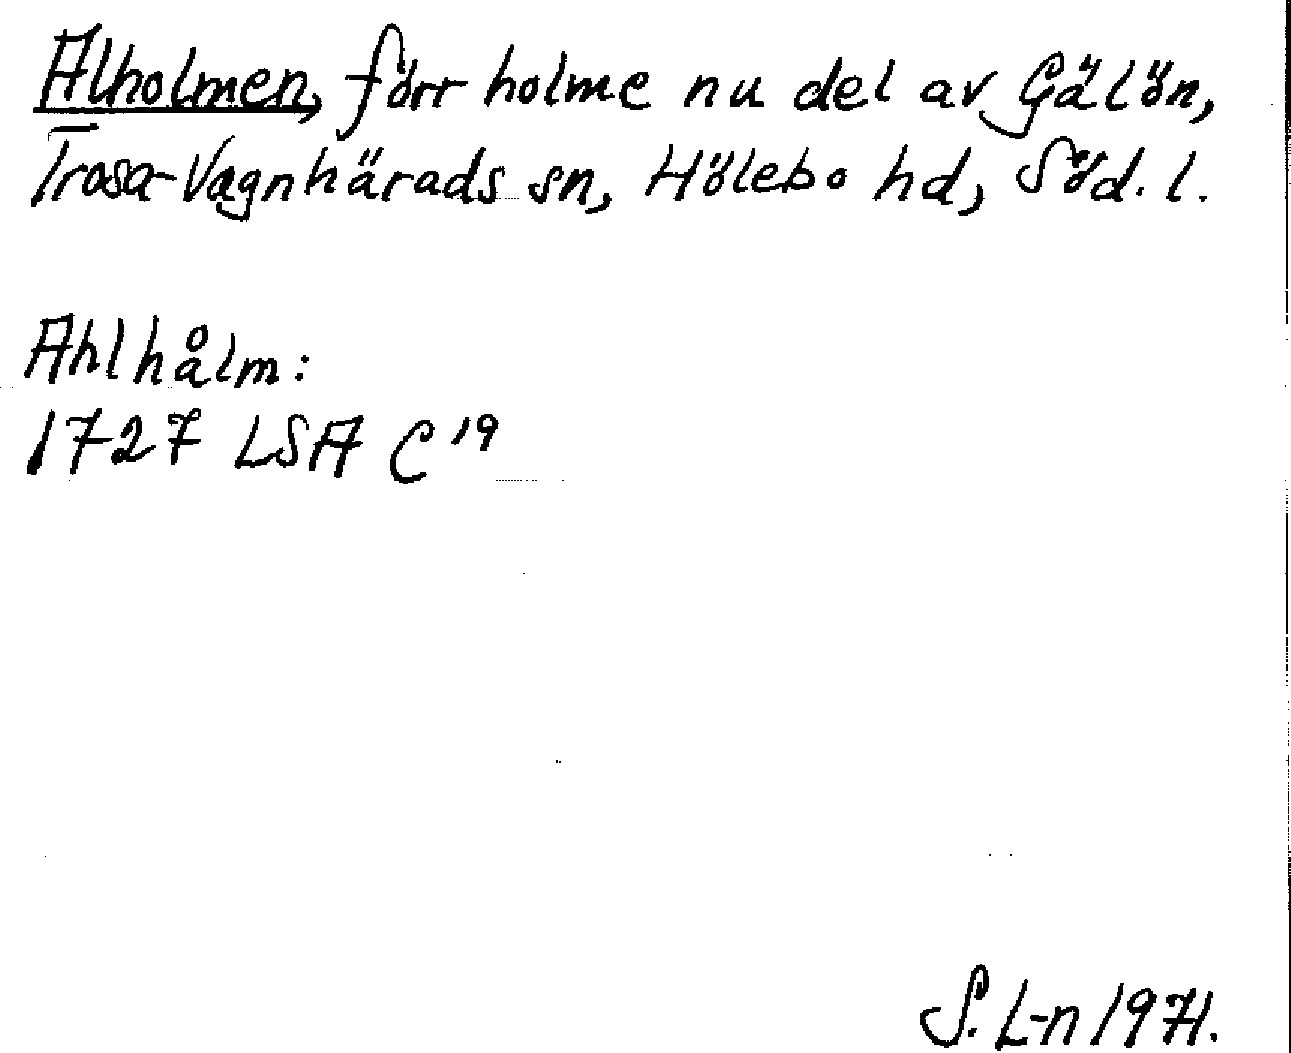 Alholmen, förr holme nu del av Gälön,
Trosa-Vagnhärads sn, Hölebo hd, Söd. l.
Ahlhålm:
1727 LSA C 19
S. L-n 1971.